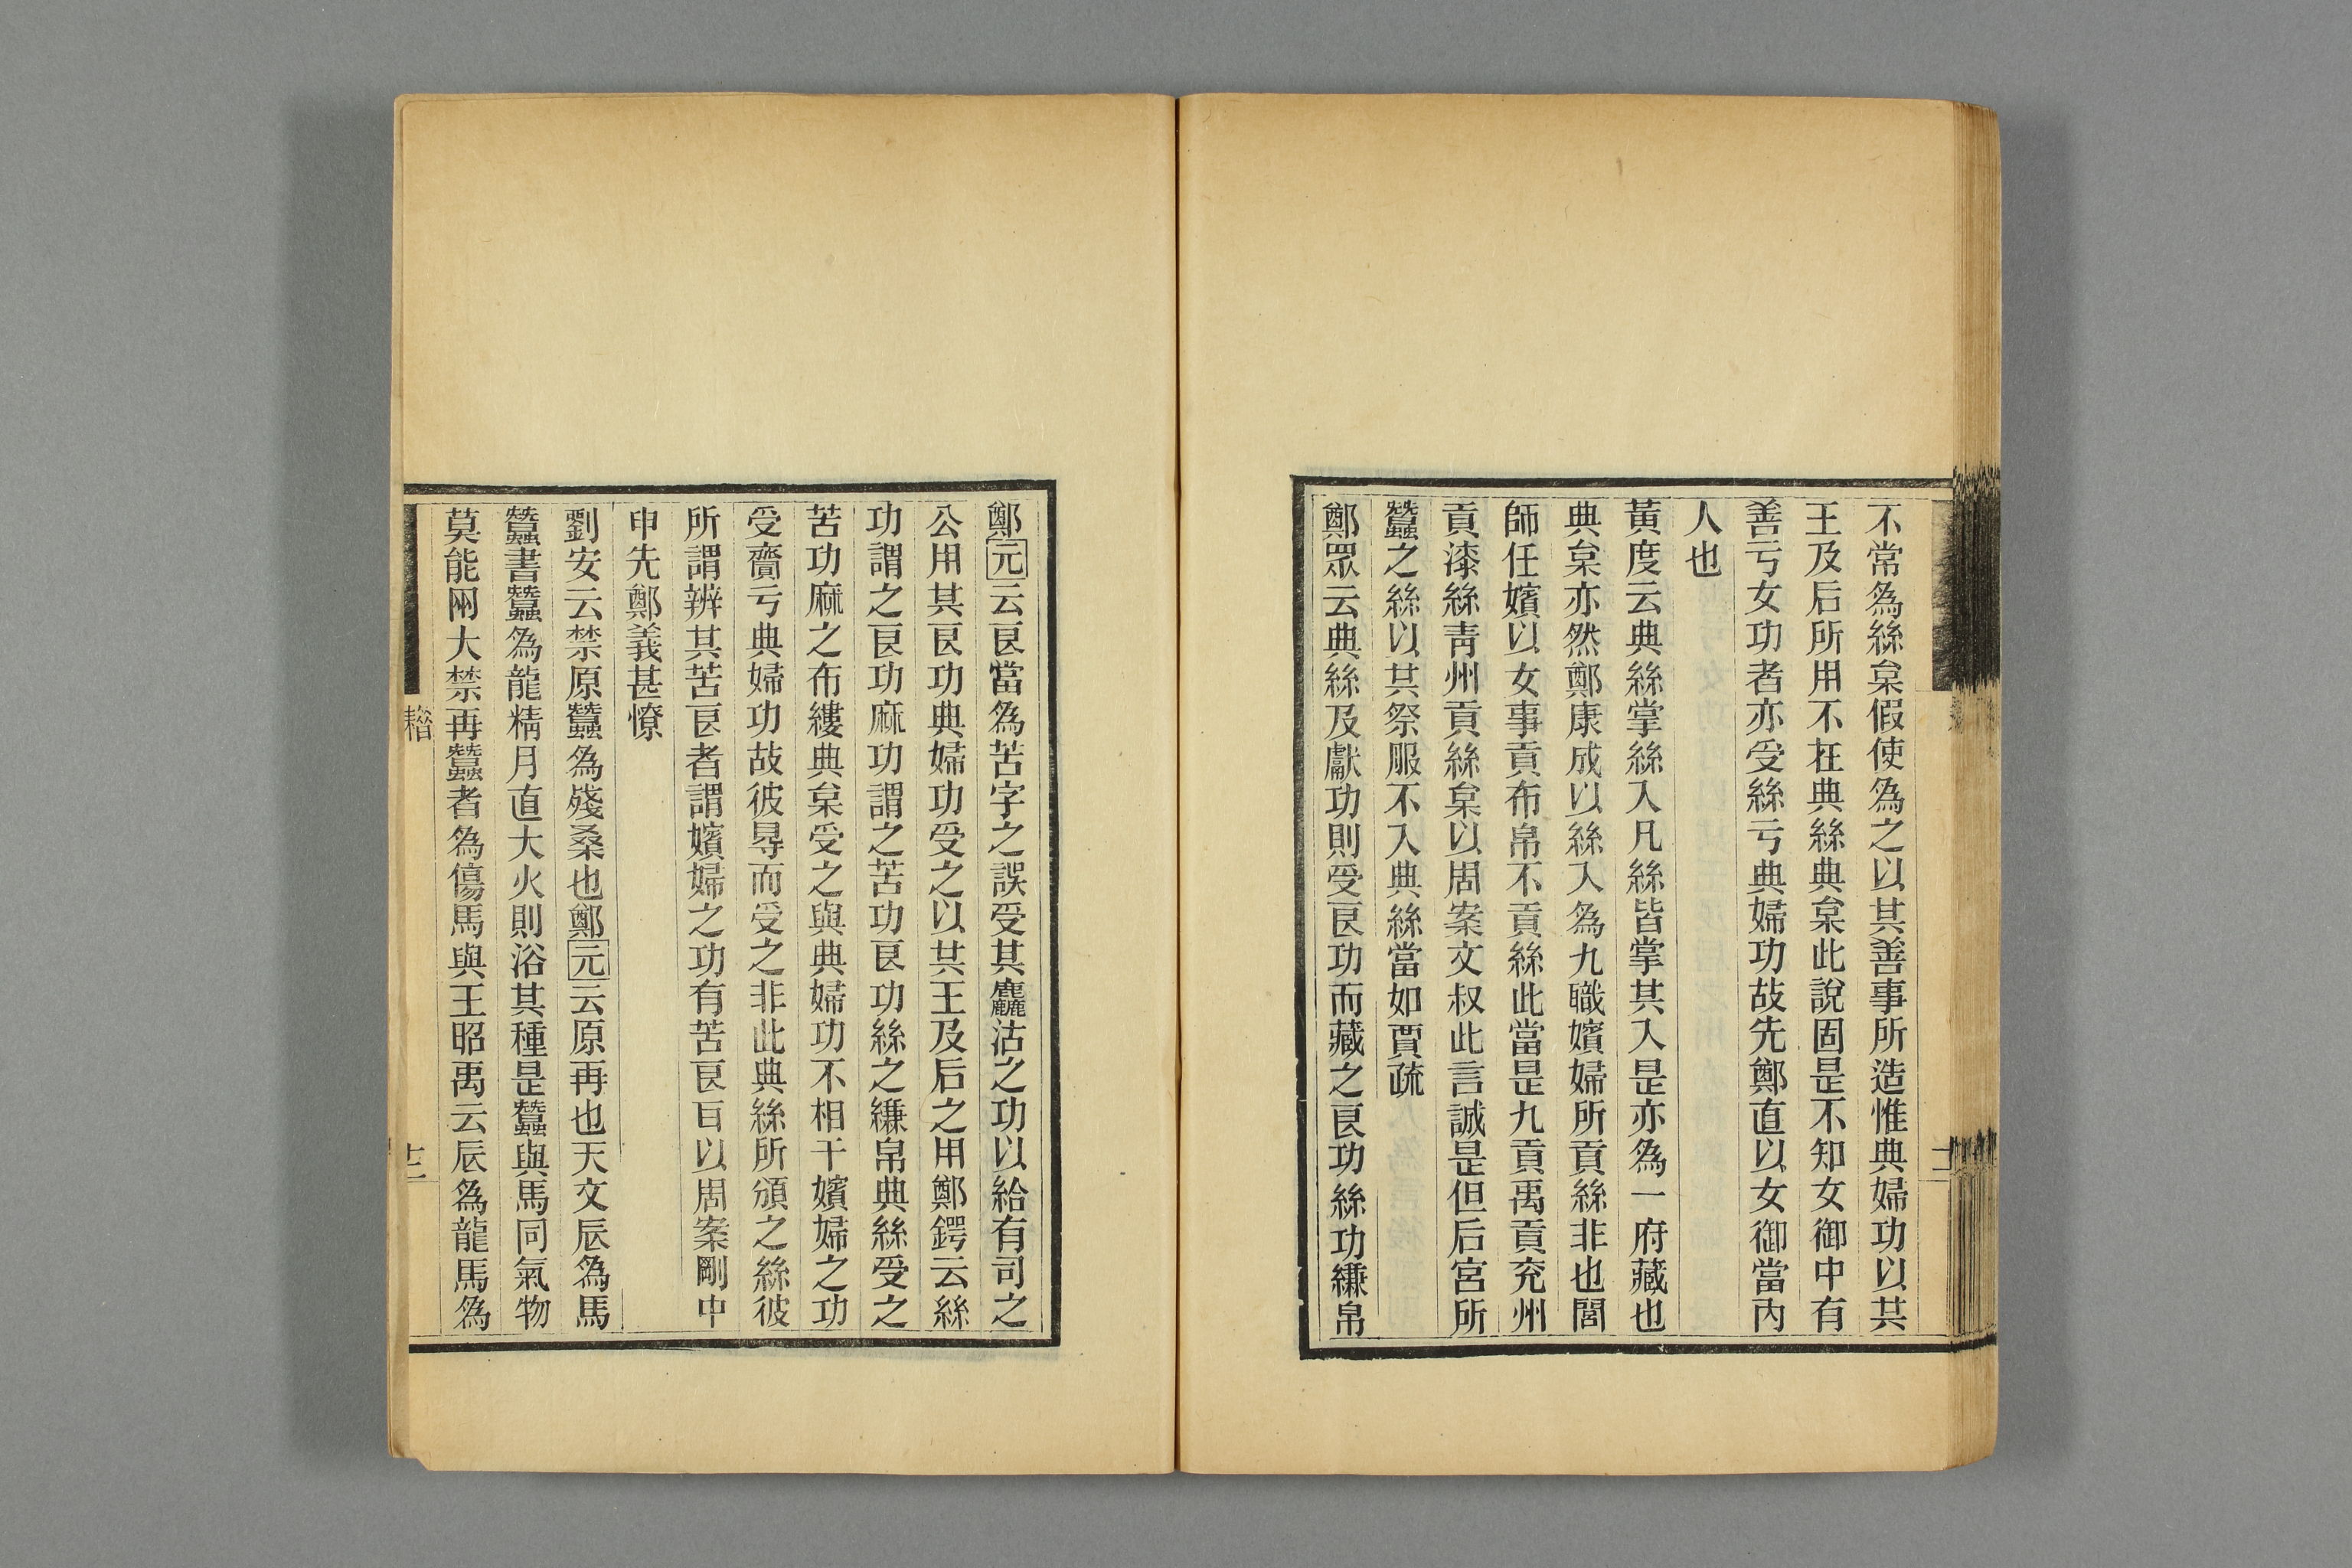 不常為絲枲假使為之以其善事所造惟典婦功以共
王及后所用不在典絲典枲此說固是不知女御中有
善亏女功者亦受絲亏典婦功故先鄭直以女御當內
人也
黃度云典絲掌絲入凡絲皆掌其入是亦為一府藏也
典枲亦然鄭康成以絲入為九職嬪婦所貢絲非也閭
師任嬪以女事貢布帛不貢絲此當是九貢禹貢兗州
貢漆絲青州貢絲枲以周案文叔此言誠是但后宮所
蠶之絲以共祭服不入典絲當如賈疏
鄭眾云典絲及獻功則受良功而藏之良功絲功縑帛
十二
鄭元云良當為苦字之誤受其麤沽之功以給有司之
公用其良功典婦功受之以共王及后之用鄭鍔云絲
功謂之良功麻功謂之苦功良功絲之縑帛典絲受之
苦功麻之布縷典枲受之與典婦功不相干嬪婦之功
受齎亏典婦功故彼㝵而受之非此典絲所頒之絲彼
所謂辨其苦良者謂嬪婦之功有苦良百以周案剛中
申先鄭義甚憭
劉安云禁原蠶為殘桑也鄭元云原再也天文辰為馬
蠶書蠶為龍精月直大火則浴其種是蠶與馬同氣物
莫能兩大禁再蠶者為傷馬與王昭禹云辰為龍馬為
十三